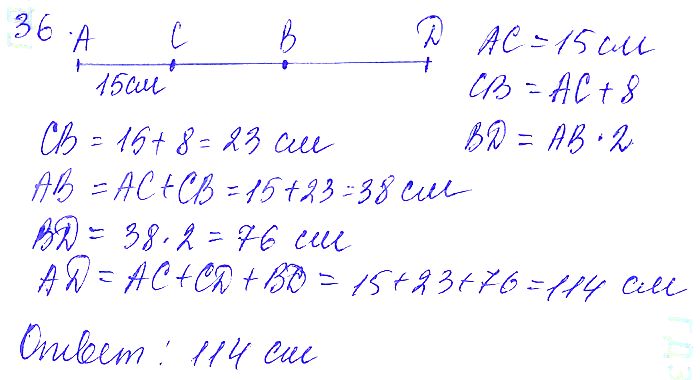 36.
A C B D
15см
AC = 15 см
CB = AC + 8
BD = AB · 2
CB = 15 + 8 = 23 см
AB = AC + CB = 15 + 23 = 38 см
BD = 38 · 2 = 76 см
AD = AC + CD + BD = 15 + 23 + 76 = 114 см
Ответ: 114 см
гдз